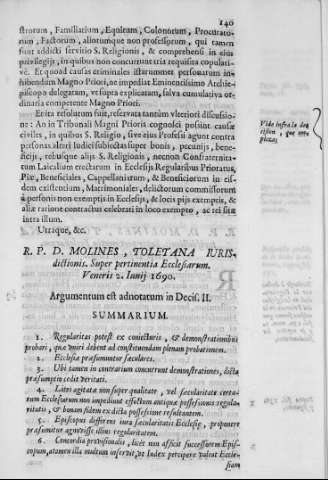 140
strorum, Familiarium, Equitum, Colonorum, Procurato-
rum, Factorum, aliorumque non professorum, qui tamen
sunt addicti servitio S. Religionis, & comprehensi in eius
privilegijs, in quibus non concurrunt tria requisita copulati-
vè. Et quoad causas criminales istarummet personarum in-
hibendum Magno Priori, ne impediat Eminentissimo Archie-
piscopo delegatam, ve supra explicatam, salva cumulativa or-
dinaria competente Magno Priori.
Erita resolutum fuit, reservata tantum vlteriori discussio-
ne: An in Tribunali Magni Prioris cognosci possint causæ
civiles, in quibus S. Religio, sive eius Professi agunt contra
personas alteri Iudici subiectas super bonis, pecunijs, benefi-
cijs, rebusque alijs S. Religionis, necnon Confraternita-
tum Laicalium erectarum in Ecclesijs Regularibus Prioratus,
Piæ, Beneficiales, Cappellanistrum, & Beneficiorum in eis-
dem existentium, Matrimoniales, delictorum commissorum
à personis non exemptis in Ecclesijs, & locis pijs exemptis, &
aliæ ratione contractus celebrati in loco exempto, ac rei sitæ
intra illum.
Utraque, &c.
Vide infra la decision,
R. P. D. MOLINES, TOLETANA IURIS-
dictionis. Super pertinentia Ecclesiarum.
Veneris 2. Iunij 1690.
Argumentum est adnotatum in Decis. II.
SUMMARIUM.
1. Regularitas potest ex coniecturis, & demonstrationibus
probari, quæ vniri debent ad constituendam plenam probationem.
2. Ecclesiæ præsumuntur sæculares.
3. Ubi tamen in contrarium concurrunt demonstrationes, dicta
præsumptio cedit veritati.
4. Lites agitatæ non super qualitate, vel sæcularitate certa-
rum Ecclesiarum non impediunt effectum antiquæ possessionis regula-
ritatis, & bonam fidem ex dicta possessione resultantem.
5. Episcopus differens iura sæcularitatis Ecclesiæ, proponere
præsumitur agnovisse illius regularitatem.
6. Concordia provisionalis, licet non afficit successorem Epis-
copum, attamen illa multum infervit, ve Iudex percipere valeat Eccle-
siam